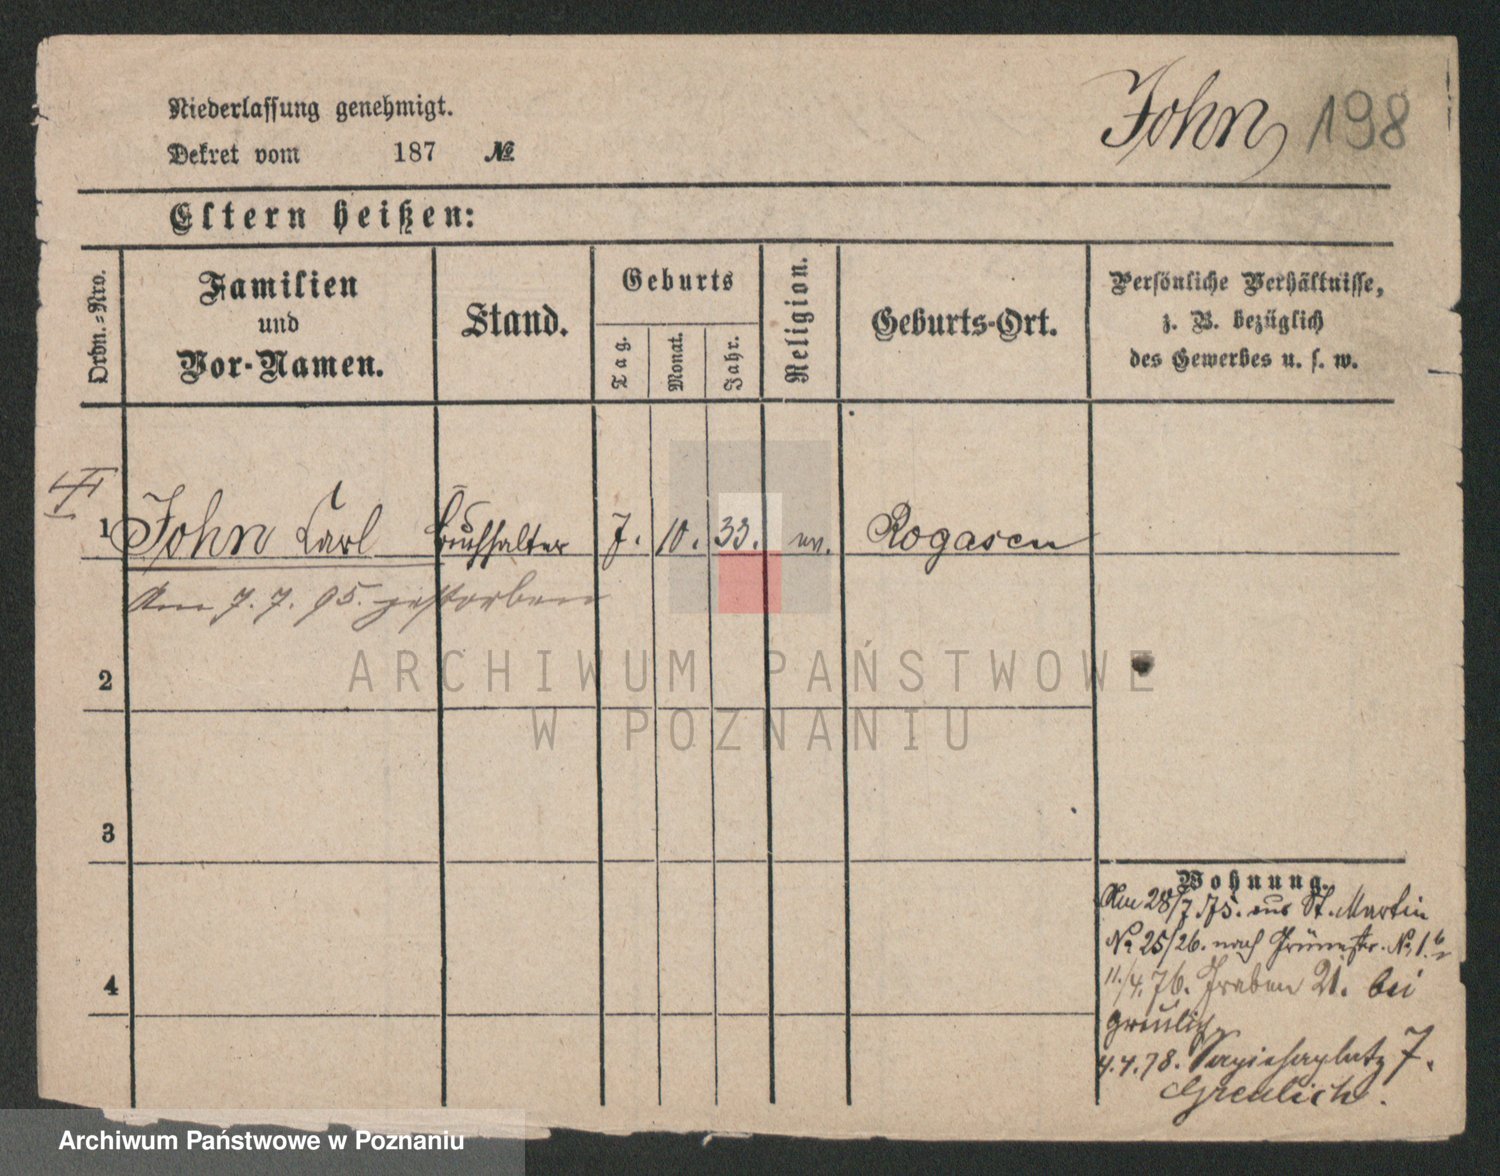 Niederlassung genehmigt.
Dekret vom 187 №
John 198
Eltern heißen:
Ordn.-Nro.
Familien
und
Vor-Namen.
Stand.
Geburts
Tag.
Monat.
Jahr.
Religion.
Geburts-Ort.
Persönliche Verhältnisse,
z. B. bezüglich
des Gewerbes u. s. w.
1 John Carl Buchhalter 7. 10. 33. ev. Rogasen
Am 7. 7. 95. gestorben
2
3
4
Wohnung.
Am 28/7 75. aus St. Martin
№ 25/26. nach Grünestr. №. 1.
11./4. 76. Graben 21. bei
Greulich
4.4.78. Sapiehaplatz 7.
Greulich.
ARCHIWUM PAŃSTWOWE
W POZNANIU
Archiwum Państwowe w Poznaniu